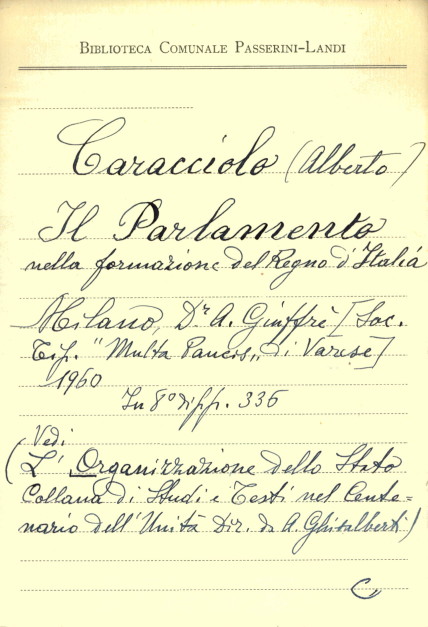 BIBLIOTECA COMUNALE PASSERINI-LANDI
Caracciolo (Alberto)
Il Parlamento
nella formazione del Regno d'Italia
Milano, Dr A. Giuffrè [Soc.
Tip. "Multa Paucis„ di Varese]
1960
In 8° di pp. 336
Vedi
(L'Organizzazione dello Stato
Collana di Studi e Testi nel Cente=
nario dell'Unità Dir. da A. Ghisalberti)
C